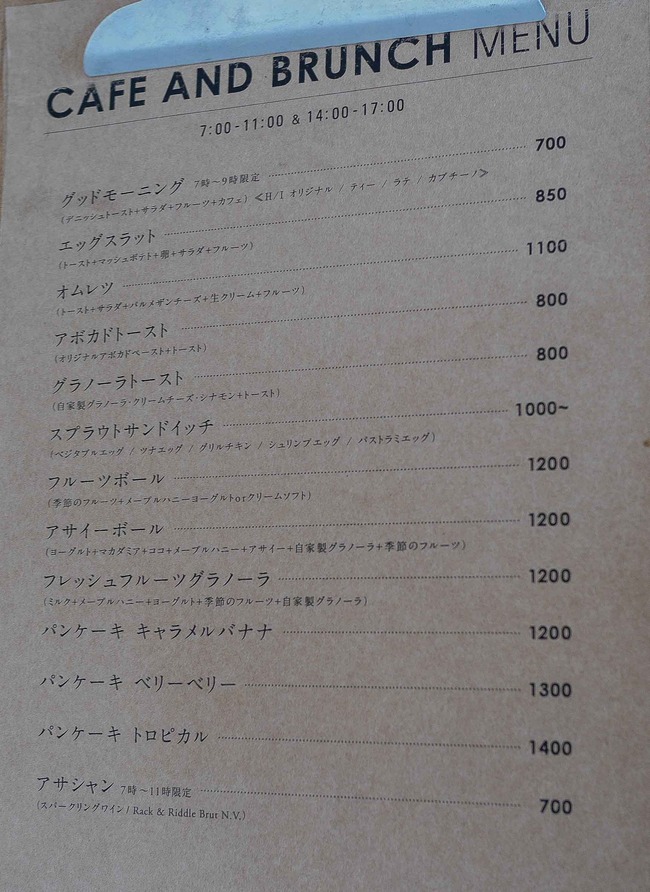 CAFE AND BRUNCH MENU
7:00-11:00 & 14:00-17:00
グッドモーニング 7時〜9時限定 700
(デニッシュトースト+サラダ+フルーツ+カフェ) ≪H/I オリジナル / ティー / ラテ / カプチーノ≫
エッグスラット 850
(トースト+マッシュポテト+卵+サラダ+フルーツ)
オムレツ 1100
(トースト+サラダ+パルメザンチーズ+生クリーム+フルーツ)
アボカドトースト 800
(オリジナルアボカドペースト+トースト)
グラノーラトースト 800
(自家製グラノーラ・クリームチーズ・シナモン+トースト)
スプラウトサンドイッチ 1000~
(ベジタブルエッグ / ツナエッグ / グリルチキン / シュリンプエッグ / パストラミエッグ)
フルーツボール 1200
(季節のフルーツ+メープルハニーヨーグルトorクリームソフト)
アサイーボール 1200
(ヨーグルト+マカダミア+ココ+メープルハニー+アサイー+自家製グラノーラ+季節のフルーツ)
フレッシュフルーツグラノーラ 1200
(ミルク+メープルハニー+ヨーグルト+季節のフルーツ+自家製グラノーラ)
パンケーキ キャラメルバナナ 1200
パンケーキ ベリーベリー 1300
パンケーキ トロピカル 1400
アサシャン 7時〜11時限定 700
(スパークリングワイン / Rack & Riddle Brut N.V.)